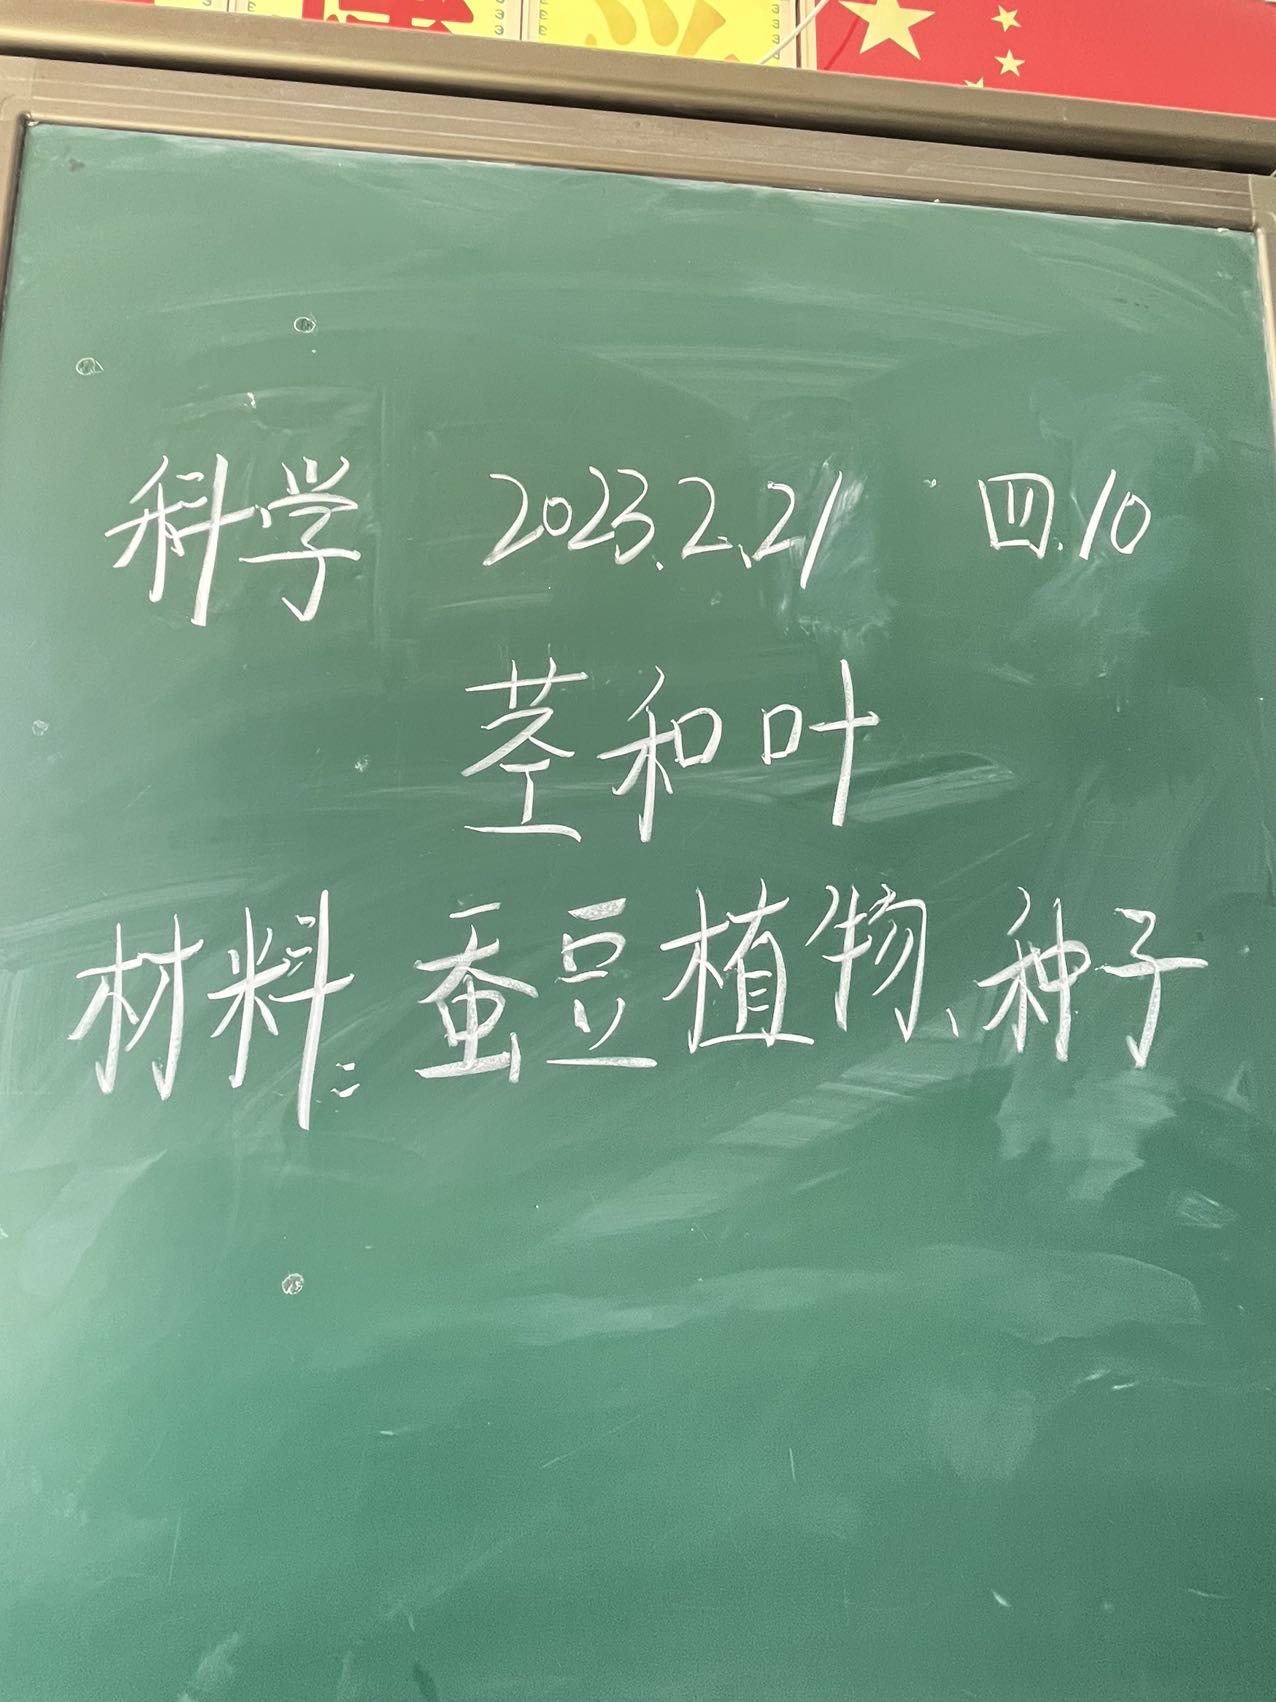 科学 2023.2.21 四.10
茎和叶
材料:蚕豆植物、种子